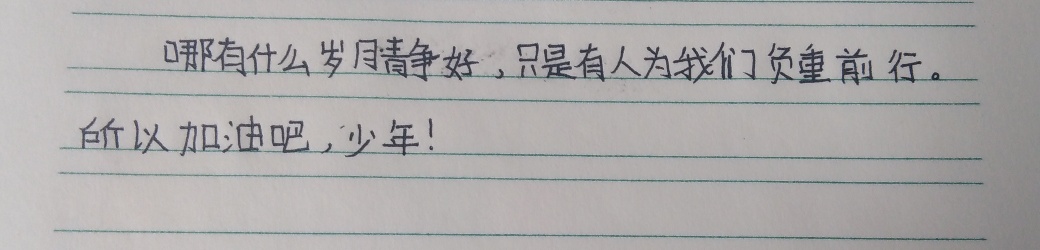 哪有什么岁月青争好，只是有人为我们负重前行。
所以加油吧，少年！